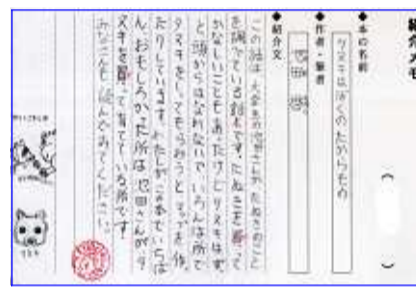 紹介メモ
◆本の名前
タヌキはぼくのたからもの
◆作者・筆者
池田 啓
◆紹介文
この話は、大学生の池田さんが、たぬきのこと
を調べている話です。たぬきを買って
かなしいこともあったけどタヌキはずっ
と頭からはなれないで、いろんな所で
タヌキをしてもらおうと
たりしています。わたしがこの本でいちば
ん、おもしろかった所は池田さんがタ
ヌキを買って育てている所です。
みなさんも読んでみてください。